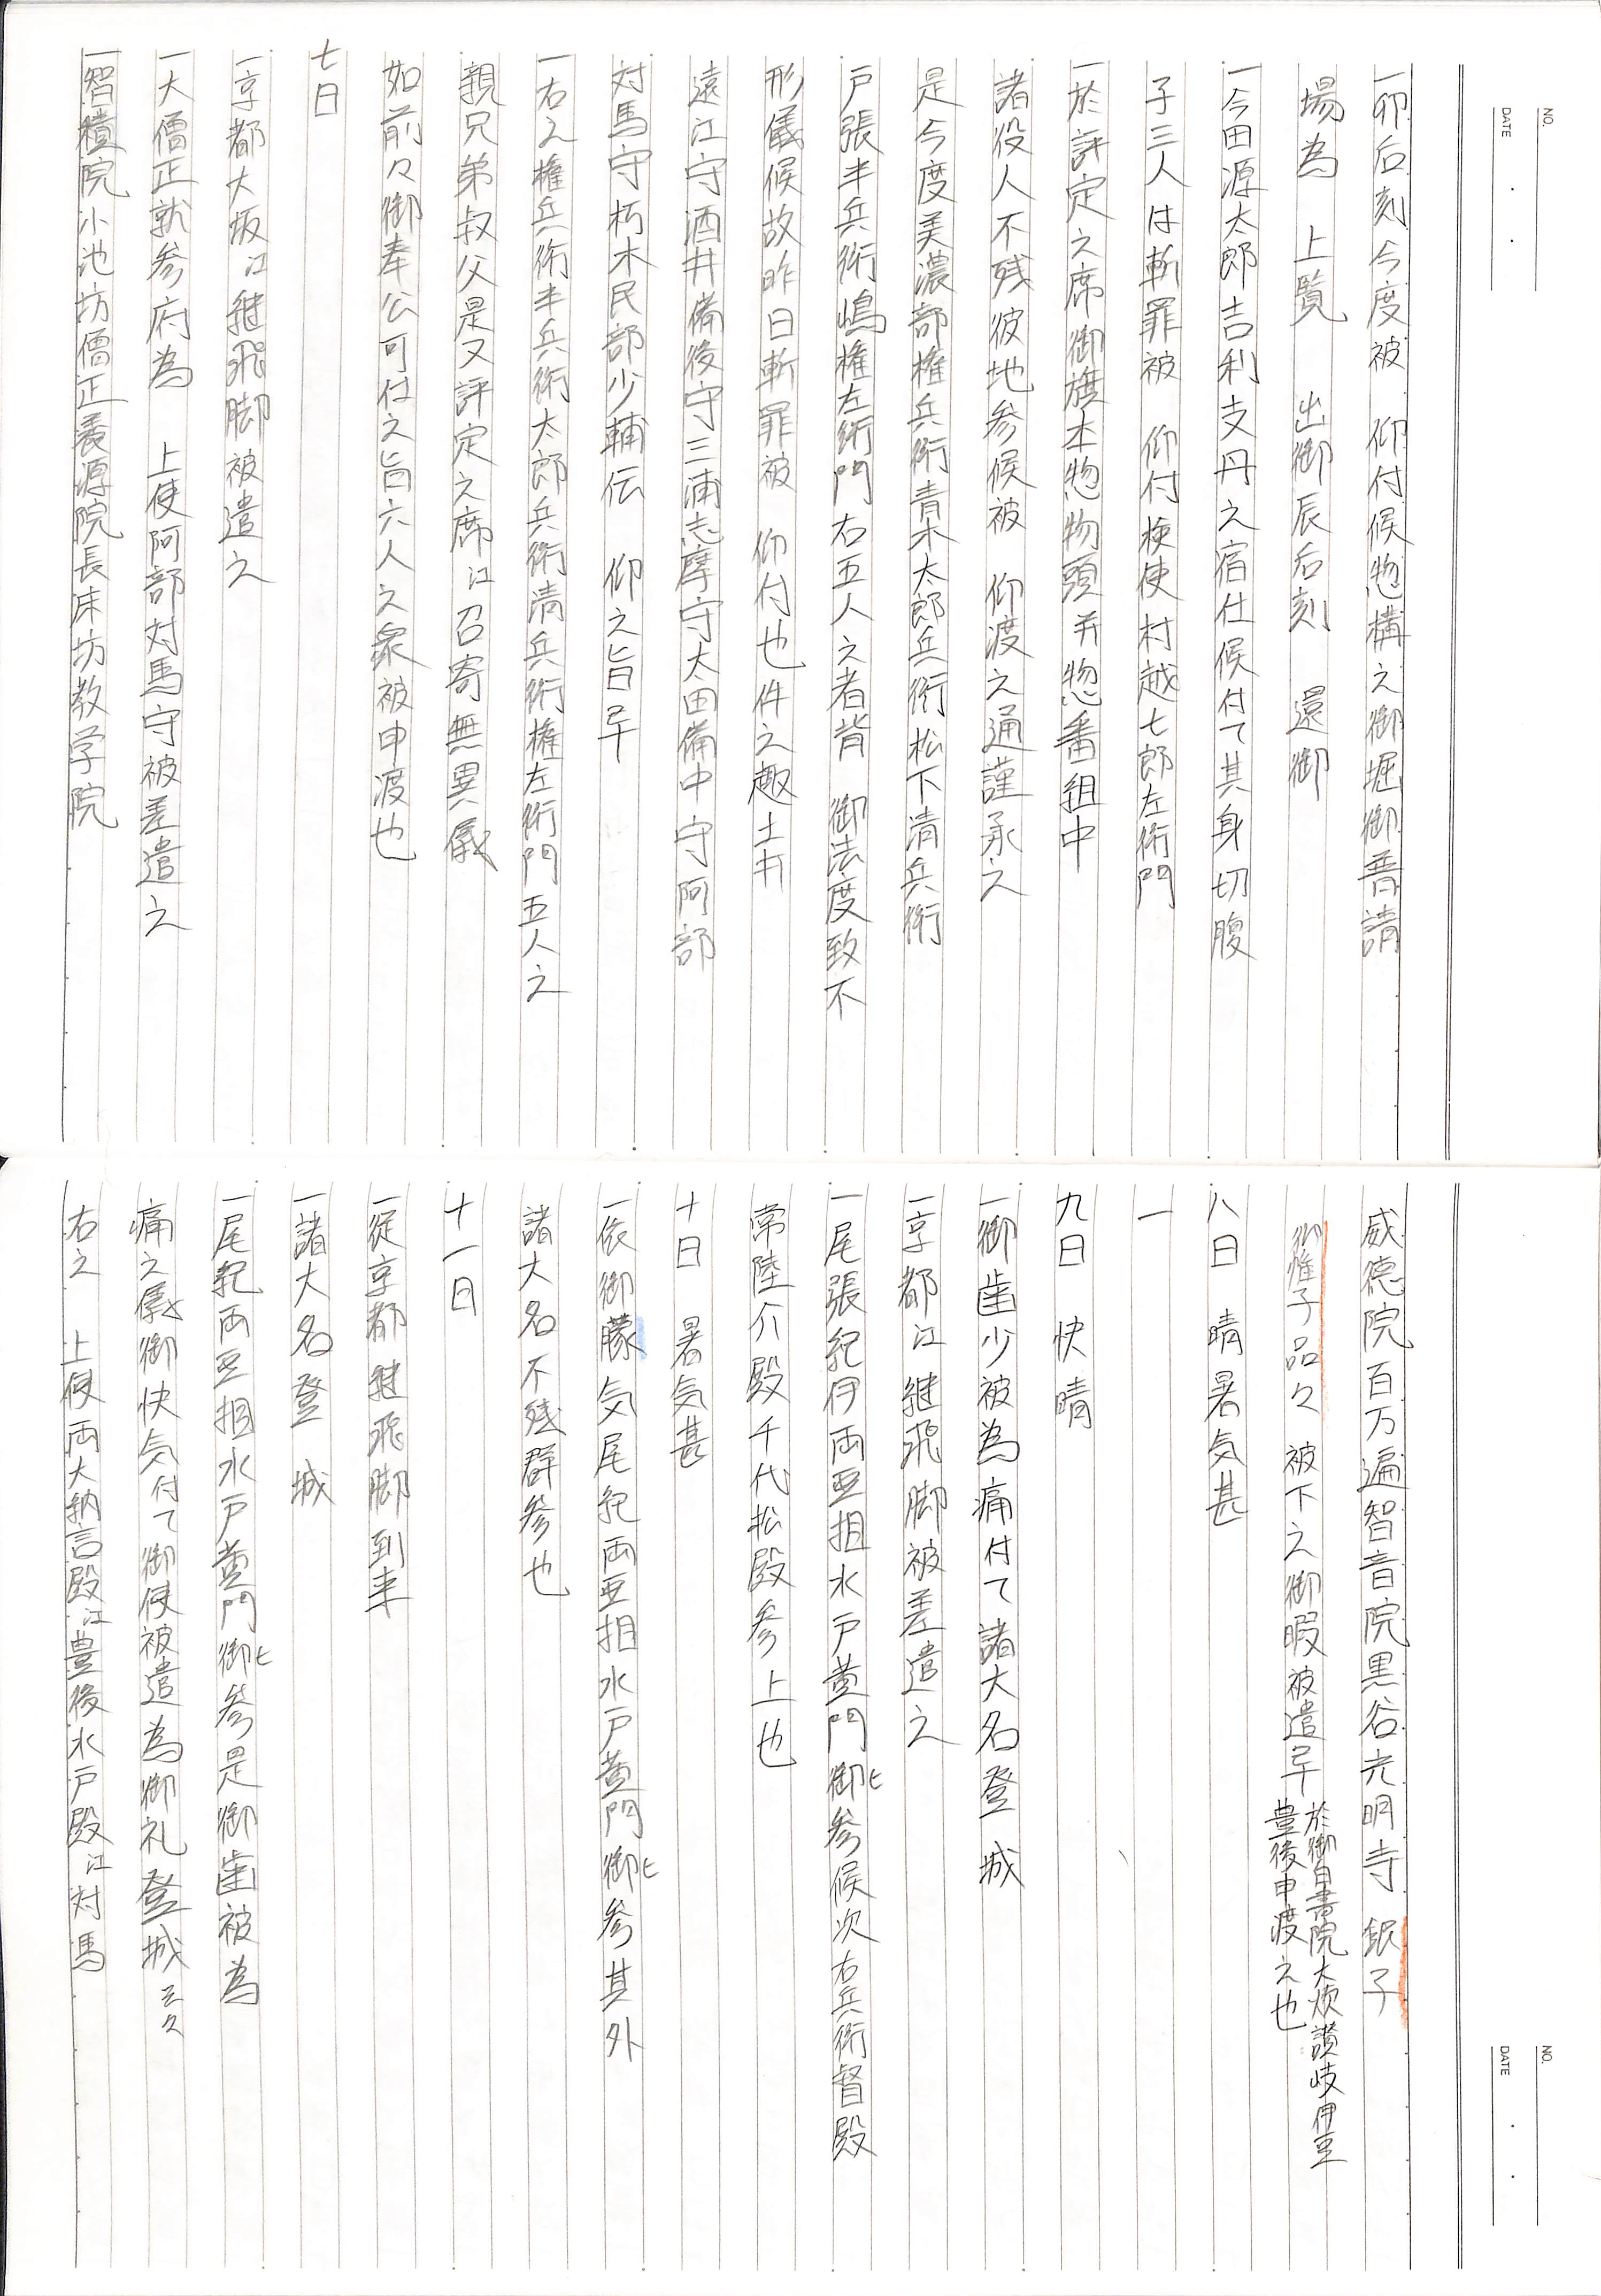 NO.
DATE ・ ・
一卯后刻今度被 仰付候惣構之御堀御普請
場為 上覧 出御辰后刻 還御
一今田源太郎吉利支丹之宿仕候付て其身切腹
子三人は斬罪被 仰付検使村越七郎左衛門
一於評定之席御旗本惣物頭并惣番組中
諸役人不残彼地参候被 仰渡之通謹承之
是今度美濃部権兵衛青木太郎兵衛松下清兵衛
戸張半兵衛嶋権左衛門右五人之者背 御法度致不
形儀候故昨日斬罪被 仰付也件之趣土井
遠江守酒井備後守三浦志摩守太田備中守阿部
対馬守朽木民部少輔伝 仰之旨畢
一右之権兵衛半兵衛太郎兵衛清兵衛権左衛門五人之
親兄弟叔父是又評定之席江召寄無異儀
如前々御奉公可仕之旨六人之衆被申渡也
七日
一京都大坂江継飛脚被遣之
一大僧正就参府為 上使阿部対馬守被差遣之
一智積院小池坊僧正養源院長床坊教学院
NO.
DATE ・ ・
威徳院百万遍智音院黒谷光明寺 銀子
御帷子品々 被下之御暇被遣畢 於御白書院大炊讃岐伊豆
豊後申渡之也
八日 晴暑気甚
一
九日 快晴
一御歯少被為痛付て諸大名登 城
一京都江継飛脚被差遣之
一尾張紀伊両亜相水戸黄門御参候次右兵衛督殿
常陸介殿千代松殿参上也
十日 暑気甚
一依御朦気尾紀両亜相水戸黄門御参其外
諸大名不残群参也
十一日
一従京都継飛脚到来
一諸大名登 城
一尾紀両亜相水戸黄門御参是御歯被為
痛之儀御快気付て御使被遣為御礼登城云々
右之 上使両大納言殿江豊後水戸殿江対馬